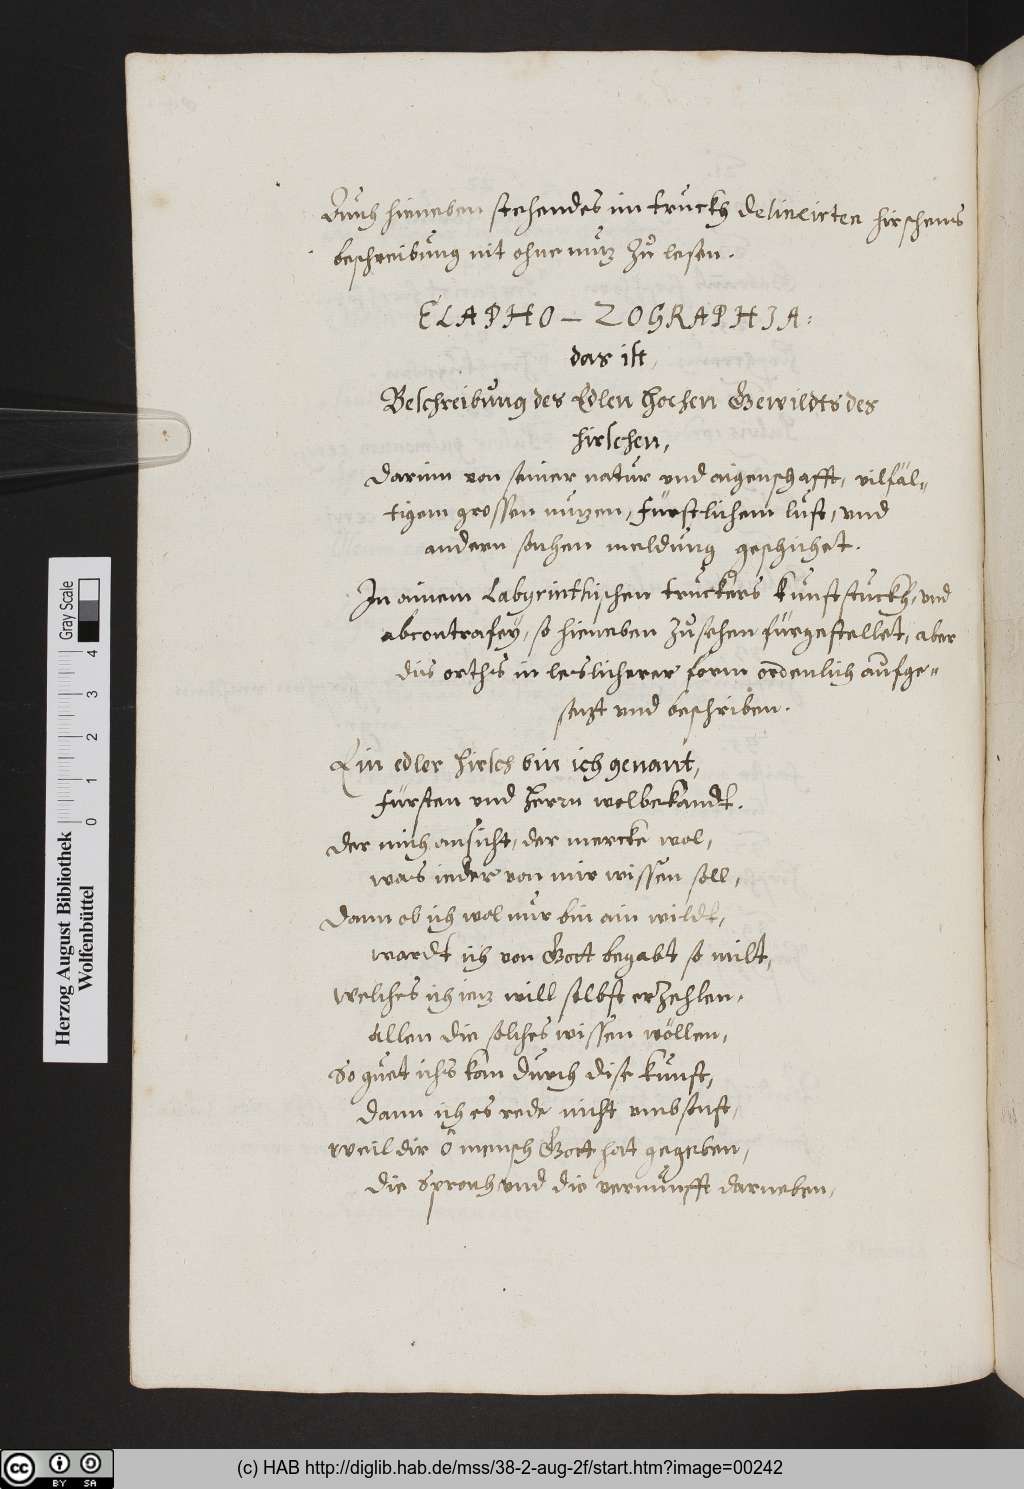 Durch hieneben stehendes im truckh delineirten hirschens
beschreibung nit ohne nuz zu lesen.
ELAPHO – ZOGRAPHIA:
das ist,
Beschreibung des Edlen hochen Gewildts des
hirschen,
darinn von seiner natur und aigenschafft, vilfäl-
tigem grossen nuzen, fürstlichem lust, und
andern sachen meldung geschichet.
In ainem Labyrinthischen truckers kunststuckh, und
abcontrafey, so hieneben zusehen fürgestellet, aber
dis orths in leslicherer form ordenlich aufge-
sezt und beschriben.
Ein edler hirsch bin ich genant,
Fürsten und Herrn wolbekandt.
der mich ansicht, der mercke wol,
was ieder von mir wissen soll,
dann ob ich wol nur bin ain wildt,
wardt ich von Gott begabt so milt,
welches ich iez will selbst erzehlen,
Allen die solches wissen wöllen,
So guet ichs kan durch dise kunst,
dann ich es rede nicht umbsonst,
weil dir ô mensch Gott hat gegeben,
die sprach und die vernunfft darneben,
Herzog August Bibliothek
Wolfenbüttel
Gray Scale
0 1 2 3 4
cc BY SA
(c) HAB http://diglib.hab.de/mss/38-2-aug-2f/start.htm?image=00242